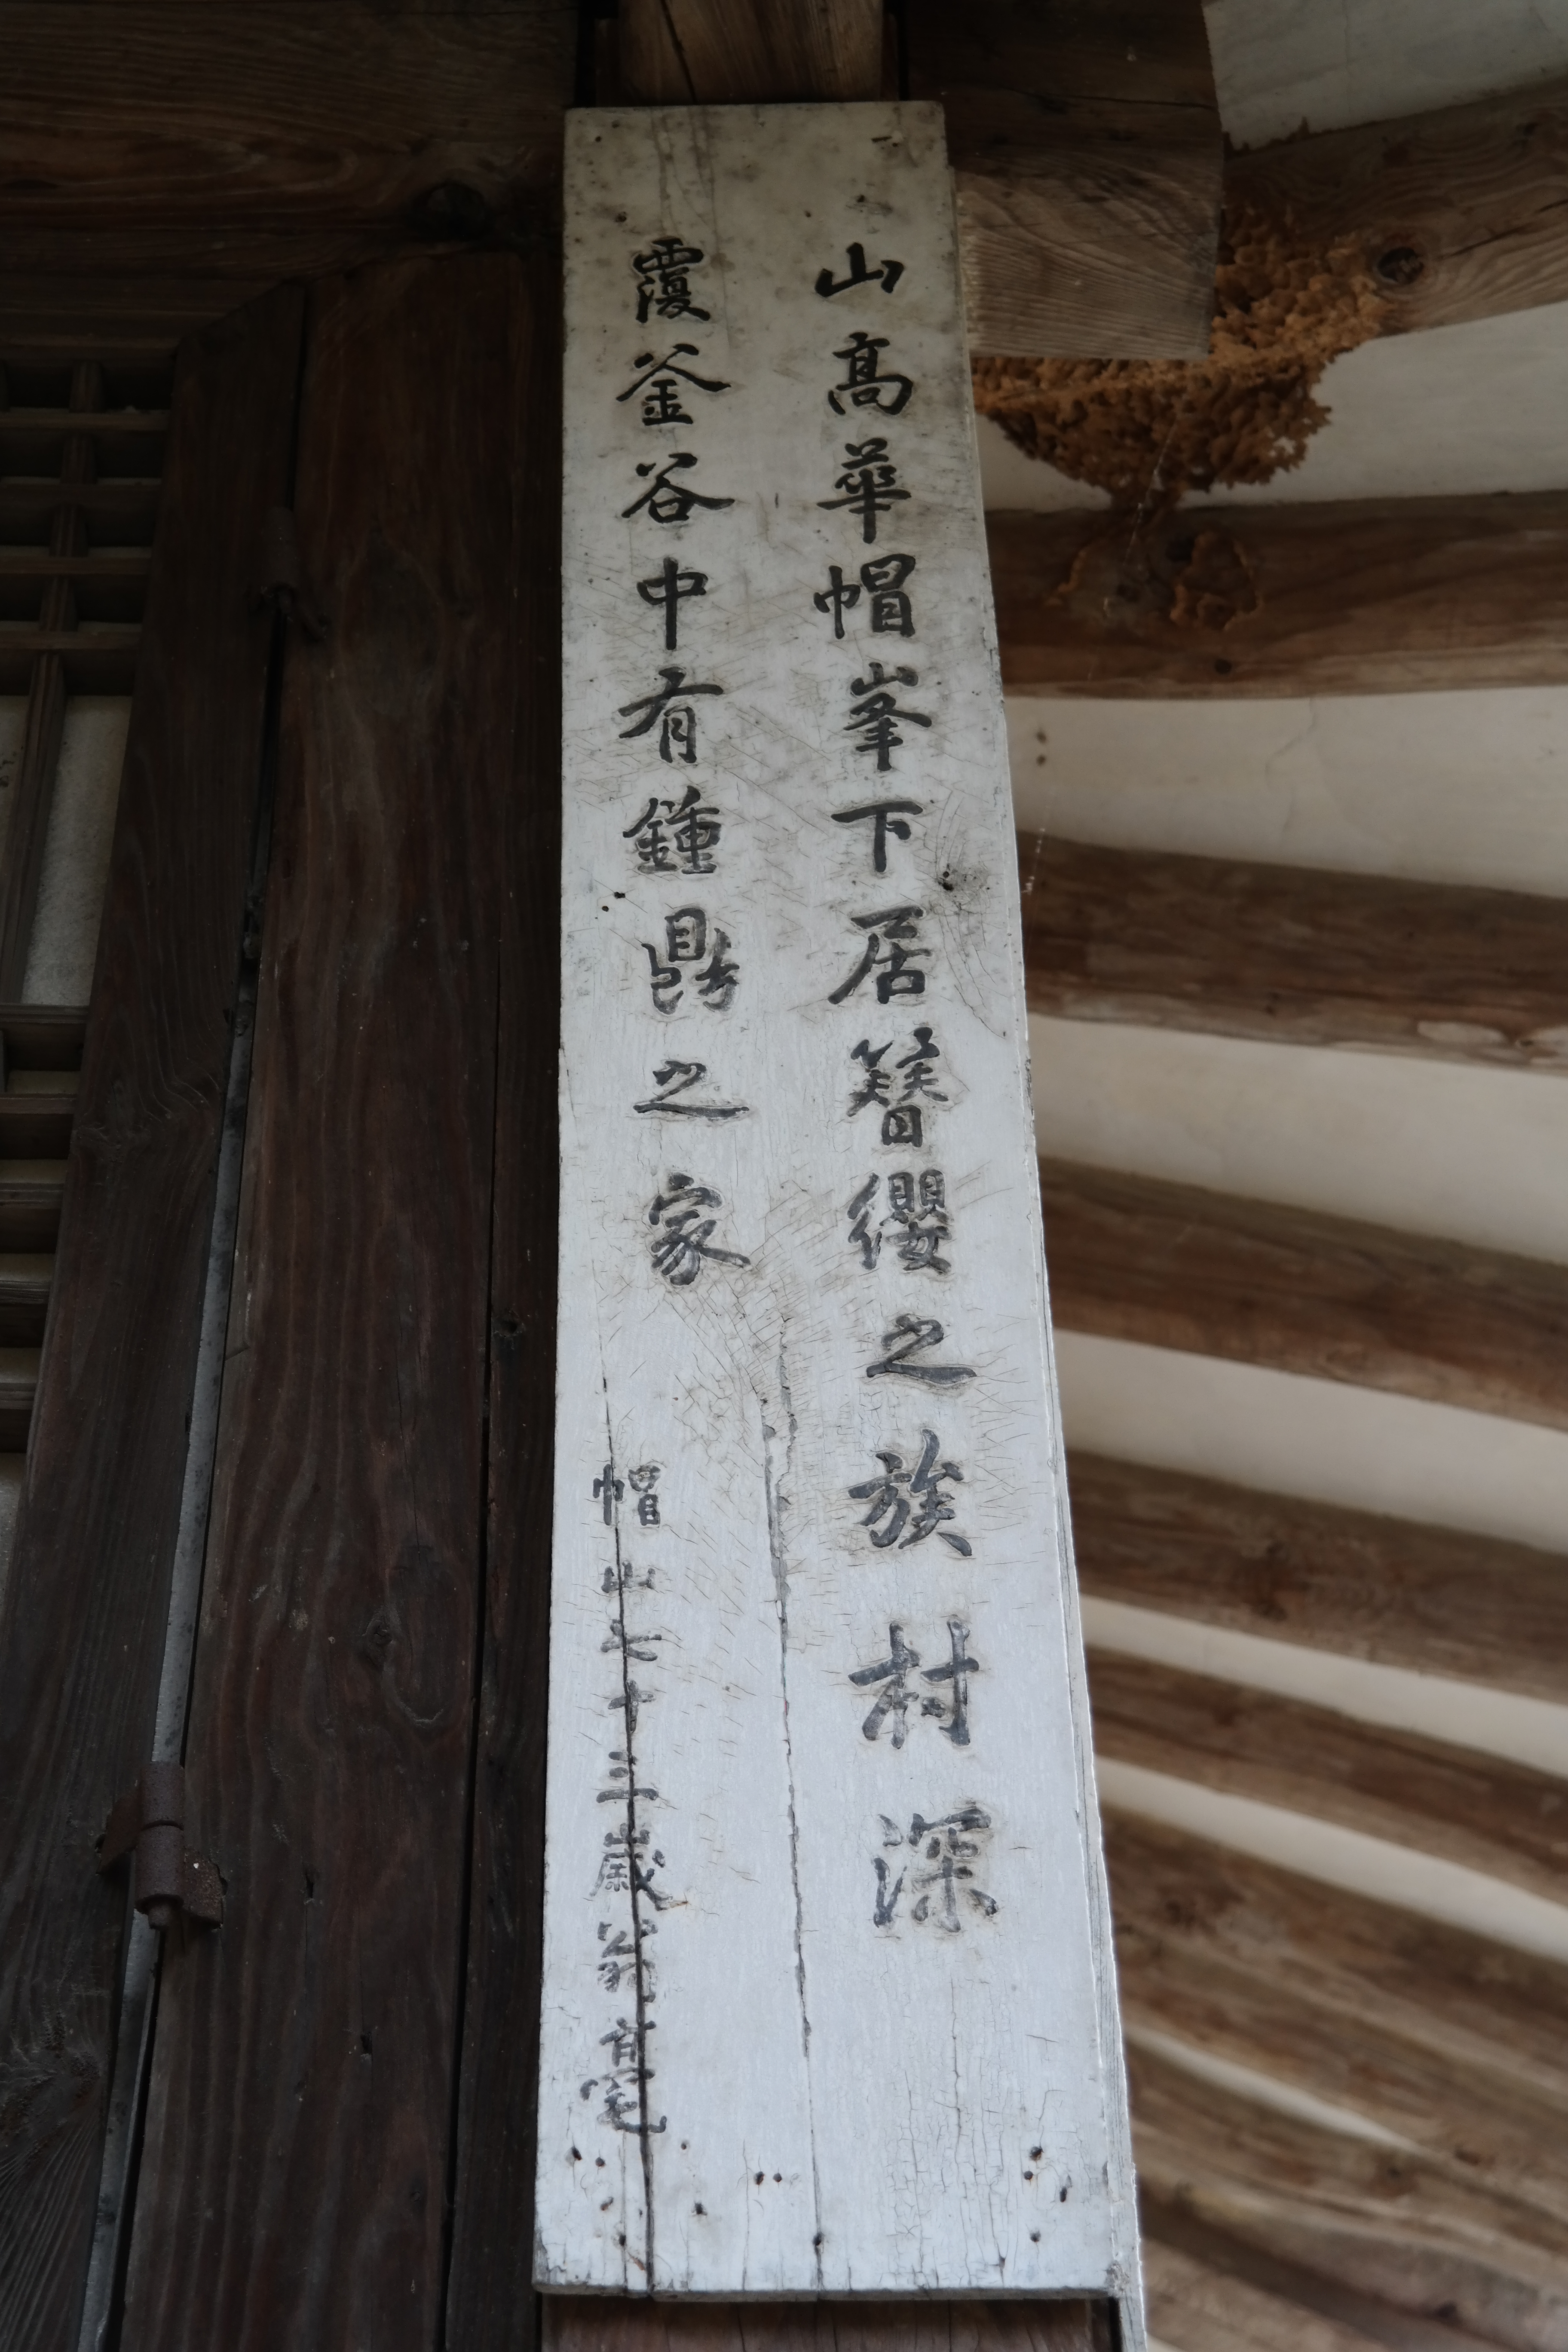 山高華帽峯下居簪纓之族村深
覆釜谷中有鍾鼎之家
帽山七十三歲翁毫